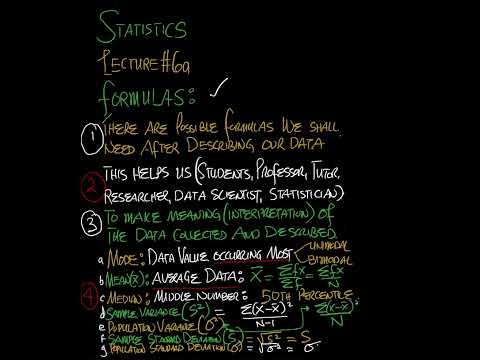 STATISTICS
LECTURE#6a
FORMULAS: ✓
① THERE ARE POSSIBLE FORMULAS WE SHALL
NEED AFTER DESCRIBING OUR DATA
② THIS HELPS US (STUDENTS, PROFESSOR, TUTOR,
RESEARCHER, DATA SCIENTIST, STATISTICIAN)
③ TO MAKE MEANING (INTERPRETATION) OF
THE DATA COLLECTED AND DESCRIBED
④
a MODE: DATA VALUE OCCURRING MOST UNIMODAL BIMODAL
b MEAN(x̄): AVERAGE DATA: X̄ = Σfx/Σf = Σfx/N
c MEDIAN: MIDDLE NUMBER: 50TH PERCENTILE
d SAMPLE VARIANCE (S²) = Σ(x-x̄)²/N-1
e POPULATION VARIANCE (σ²)
f SAMPLE STANDARD DEVIATION (S) = √S² = S
g POPULATION STANDARD DEVIATION (σ) = √σ² = σ